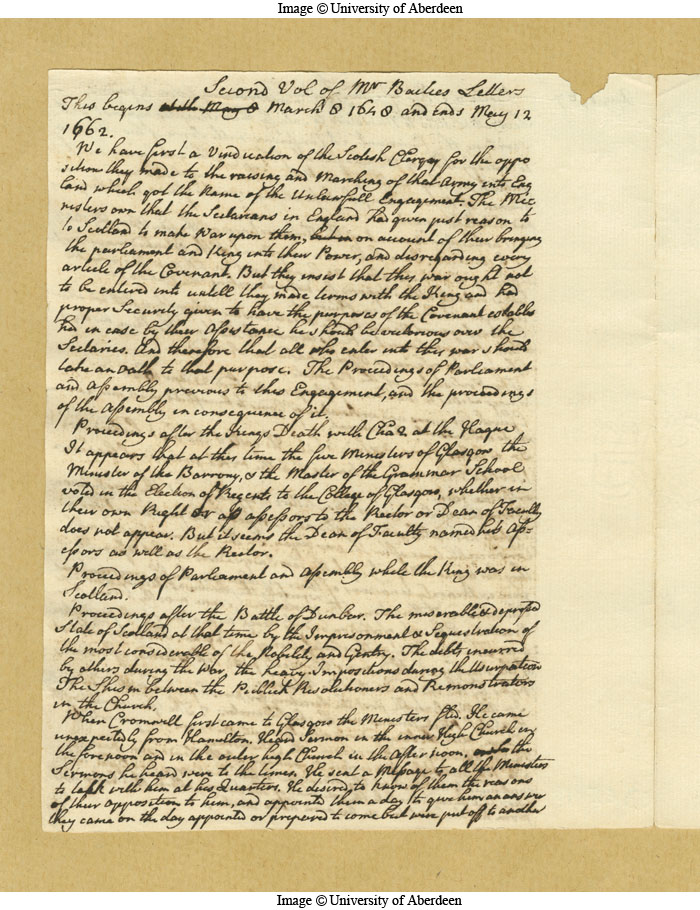 Image © University of Aberdeen
Second Vol of Mr Bailies Letters
This begins March 8 1648 and ends May 12
1662.
We have first a Vindication of the Scotish Clergy for the oppo
sition they made to the raising and Marching of that Army into Eng
land which got the Name of the Unlawfull Engagement. The Mi
nisters own that the Sectarians in England had given just reason to
to Scotland to make War upon them, on account of their bringing
the parliament and King into their Power, and disregarding every
article of the Covenant. But they insist that this war ought not
to be entered into untill they made terms with the King and had
proper Security given to have the purposes of the Covenant establis
hd in case by their Assistance he should be victorious over the
Sectaries. And therefore that all who enter into this war should
take an Oath to that purpose. The Proceedings of Parliament
and Assembly previous to this Engagement, and the proceedings
of the Assembly in consequence of it.
Proceedings after the Kings Death with Cha 2 at the Hague
It appears that at this time the five Ministers of Glasgow the
Minister of the Barrony, & the Master of the Grammar School
voted in the Election of Regents to the College of Glasgow, whether in
their own Right or as assessors to the Rector or Dean of Faculty
does not appear. But it seems the Dean of Faculty named his As-
essors as well as the Rector.
Proceedings of Parliament and Assembly while the King was in
Scotland.
Proceedings after the Battle of Dunbar. The miserable & depressed
State of Scotland at that time by the Imprisonment & Sequestration of
the most considerable of the Nobility and Gentry. The debts incurred
by others during the War, the heavy Impositions during the Usurpation
The Shism between the Publick Resolutioners and Remonstrators
in the Church.
When Cromwell first came to Glasgow the Ministers fled. He came
unexpectedly from Hamilton. Heard Sermon in the inner High Church in
the forenoon and in the outer high Church in the After noon, the
Sermons he heard were to the times. He sent a Message to all the Ministers
to talk with him at his Quarters. He desired, to know of them the reasons
of their opposition to him, and appointed them a day to give him an answer
they came on the day appointed or prepared to come but were put off to another
Image © University of Aberdeen